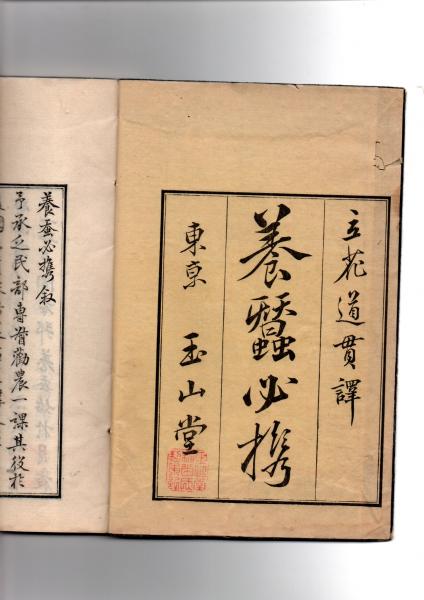 立花道貫譯
養蠶必携
東京 玉山堂
養蚕必携叙
予承乏民部專督勸農一課其後於